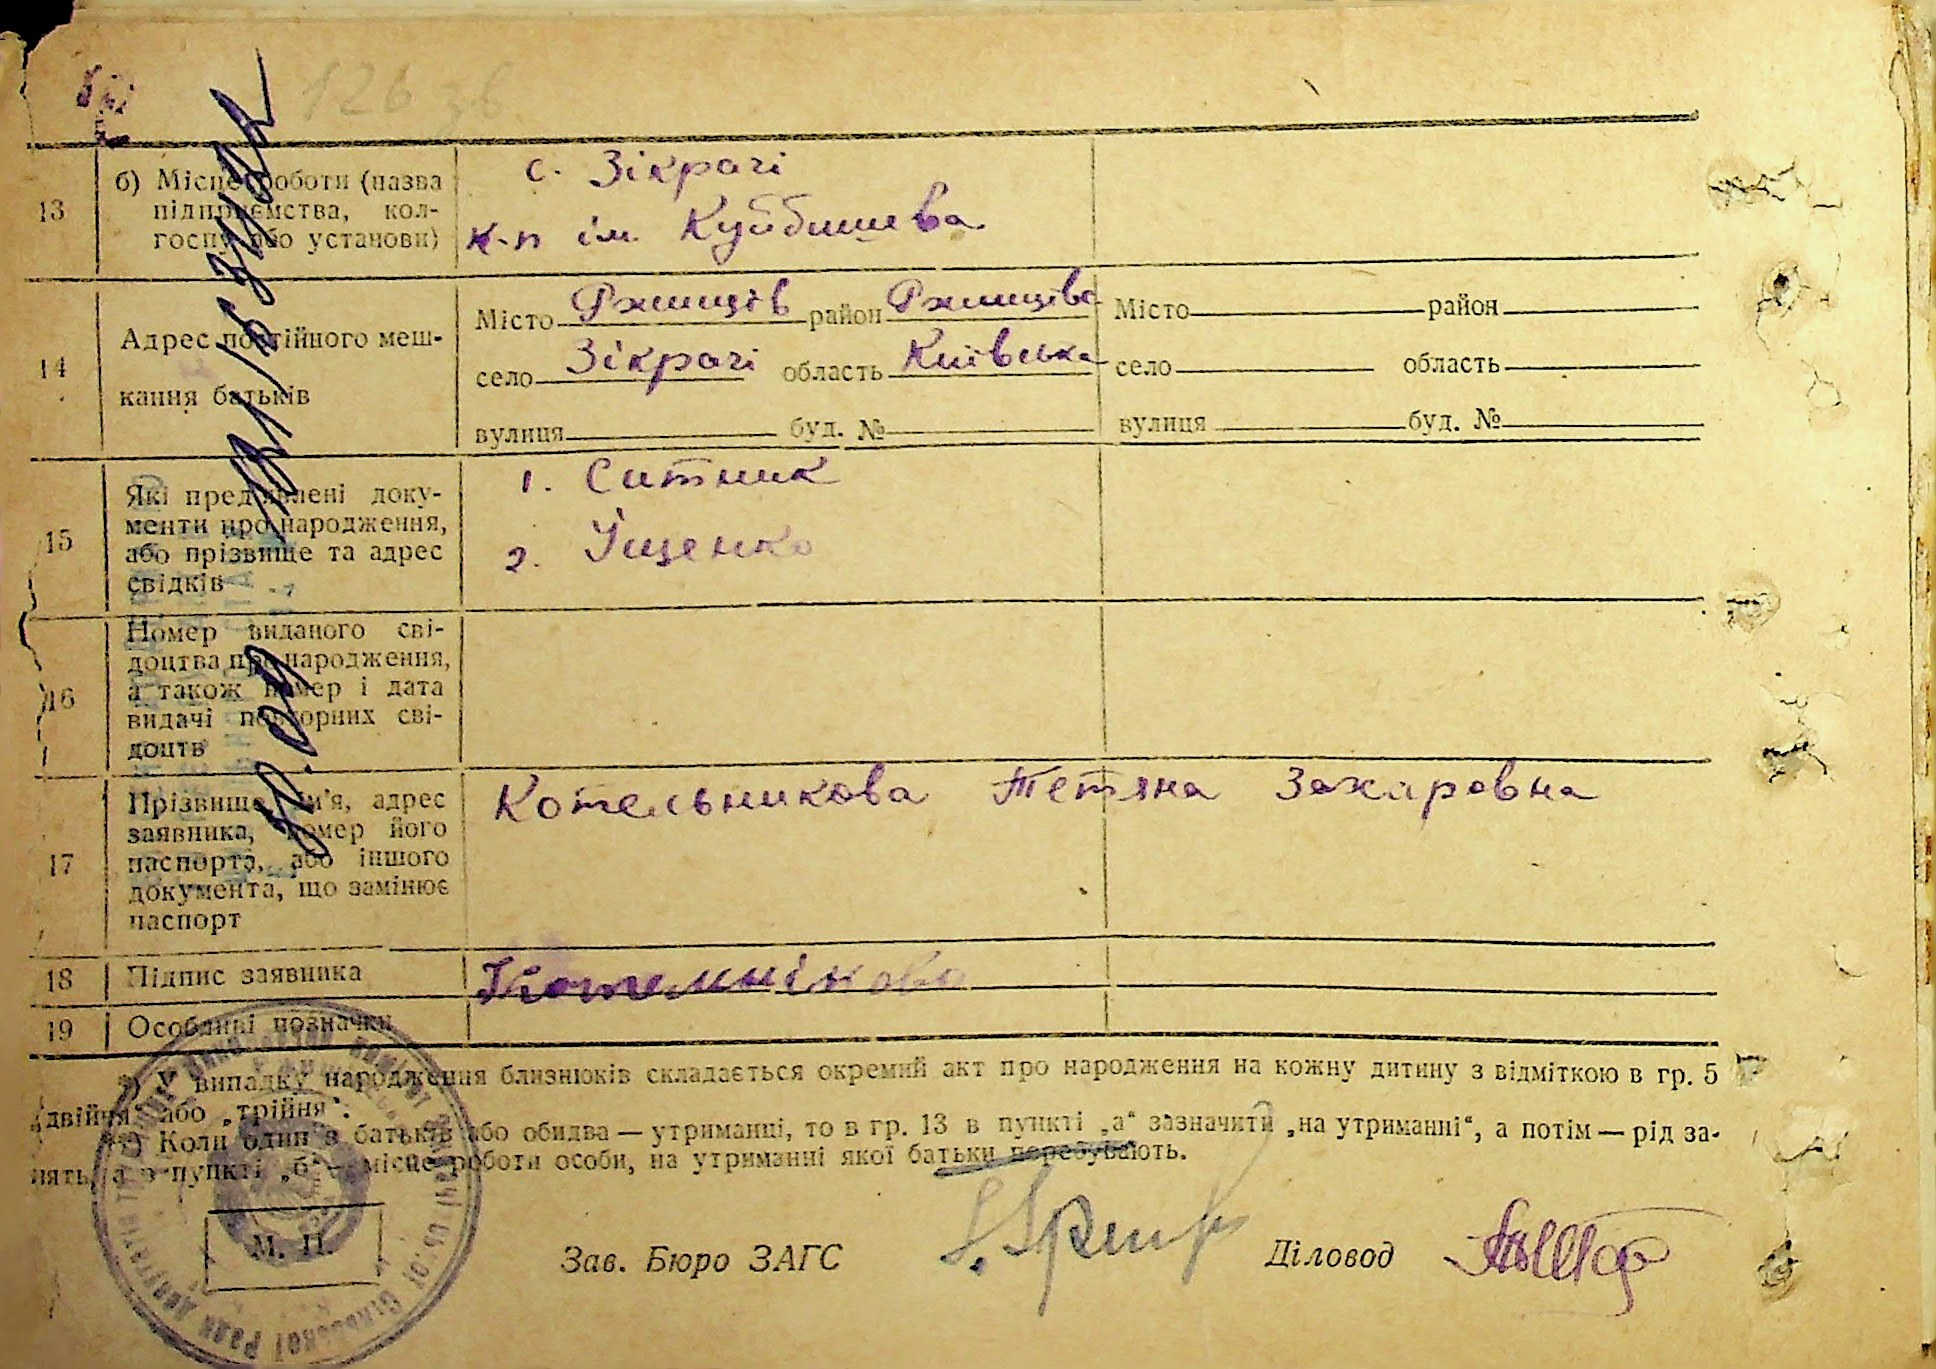 126 зв
13
б) Місце роботи (назва
підприємства, кол-
госпу або установи)
с. Зікрачі
к-п ім. Куйбишева
14
Адрес постійного меш-
кання батьків
Місто Ржищів район Ржищівс
село Зікрачі область Київська
вулиця буд. №
Місто район
село область
вулиця буд. №
15
Які пред'явлені доку-
менти про народження,
або прізвище та адрес
свідків
1. Ситник
2. Ященко
16
Номер виданого сві-
доцтва про народження,
а також номер і дата
видачі повторних сві-
доцтв
17
Прізвище, ім'я, адрес
заявника, номер його
паспорта, або іншого
документа, що замінює
паспорт
Котельникова Тетяна Захаровна
18
Підпис заявника
Котельнікова
19
Особливі позначки
*) У випадку народження близнюків складається окремий акт про народження на кожну дитину з відміткою в гр. 5
„двійня" або „трійня".
**) Коли один з батьків або обидва — утриманці, то в гр. 13 в пункті „а" зазначити „на утриманні", а потім — рід за-
нять, а в пункті „б" — місце роботи особи, на утриманні якої батьки перебувають.
М. П.
Зав. Бюро ЗАГС
Діловод